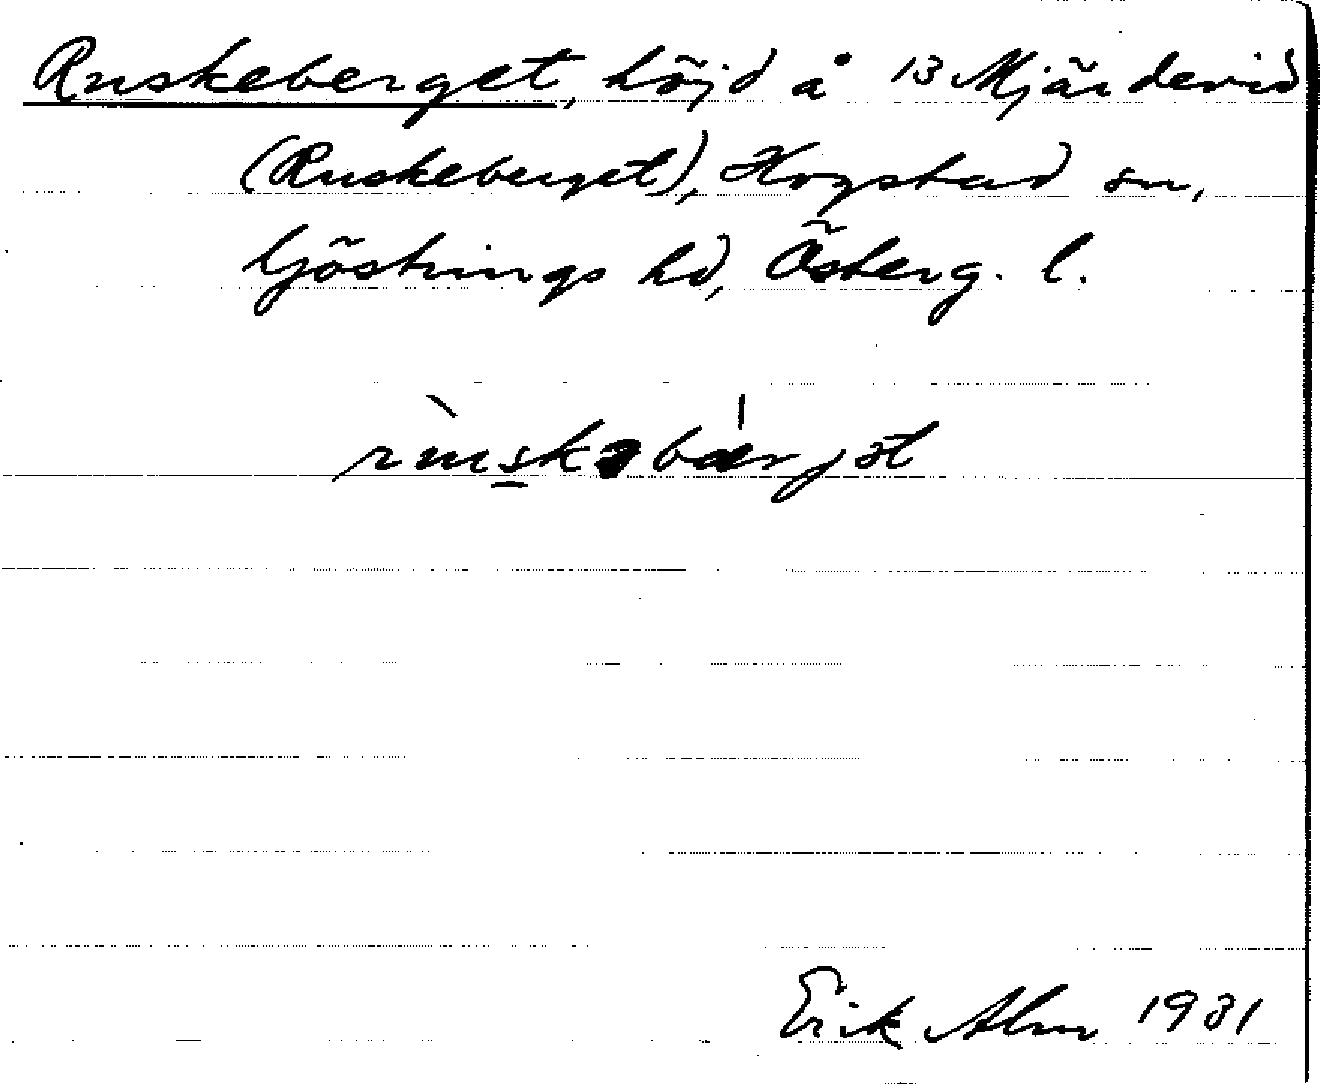 Ruskeberget, höjd å 13 Mjärdevid
(Ruskeberget), Hogstad sn,
Göstrings hd, Österg. l.
rùskəbǽrjət
Erik Alm 1931